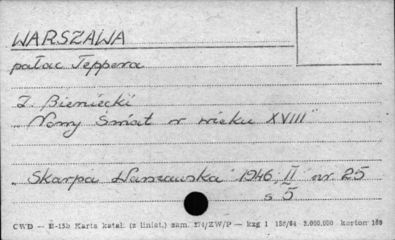 WARSZAWA
pałac Teppera
Z. Bieniecki
"Nowy Świat w wieku XVIII"
"Skarpa Warszawska" 1946, II nr 25
s 5
CWD — E-15b Karta katal. (z liniat.) zam. 174/ZW/P — kzg 1 152/64 2.000.000 karton 180